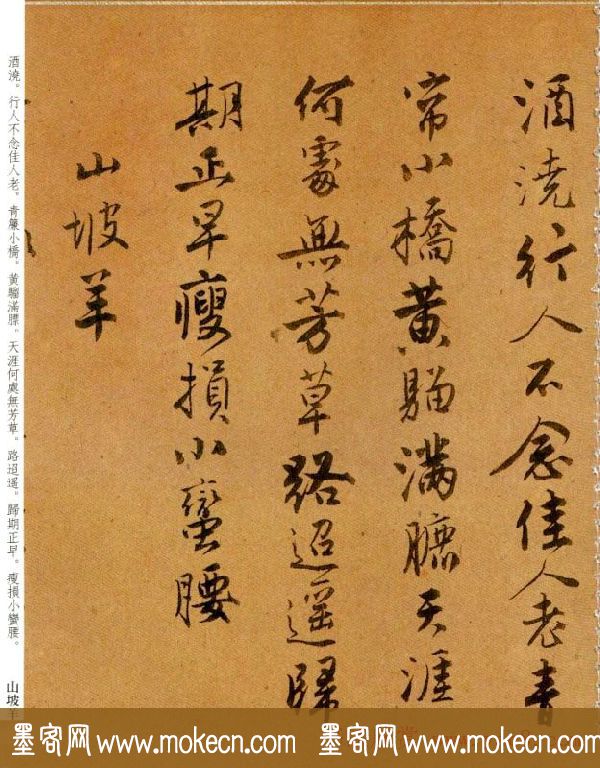 酒澆行人不念佳人老青
帘小橋黄騮滿臕天涯
何處無芳草路迢遥歸
期正早瘦損小蠻腰
山坡羊
酒澆。行人不念佳人老。青簾小橋。黃騮滿膘。天涯何處無芳草。路迢遥。歸期正早。瘦損小蠻腰。 山坡
墨客网 www.mokecn.com 墨客网 www.mokecn.com